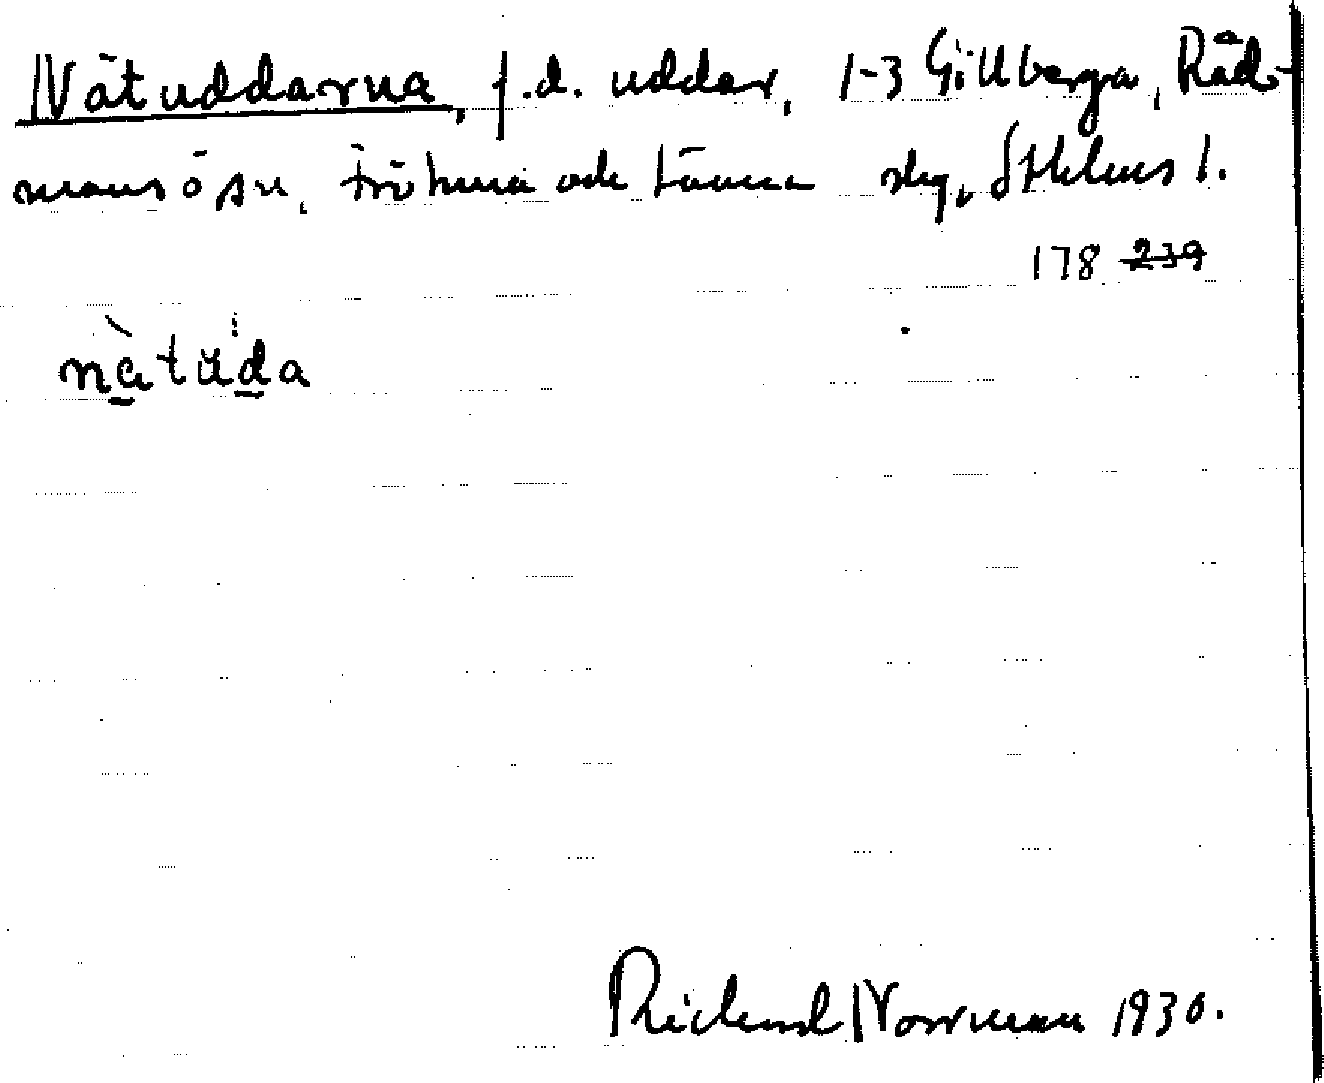 Nätuddarna, f.d. uddar, 1-3 Gillberga, Råd-
mansö sn, Frötuna och Länna slg, Sthlms l.
178 ~~239~~
nä̀tŭda
Richard Norrman 1930.